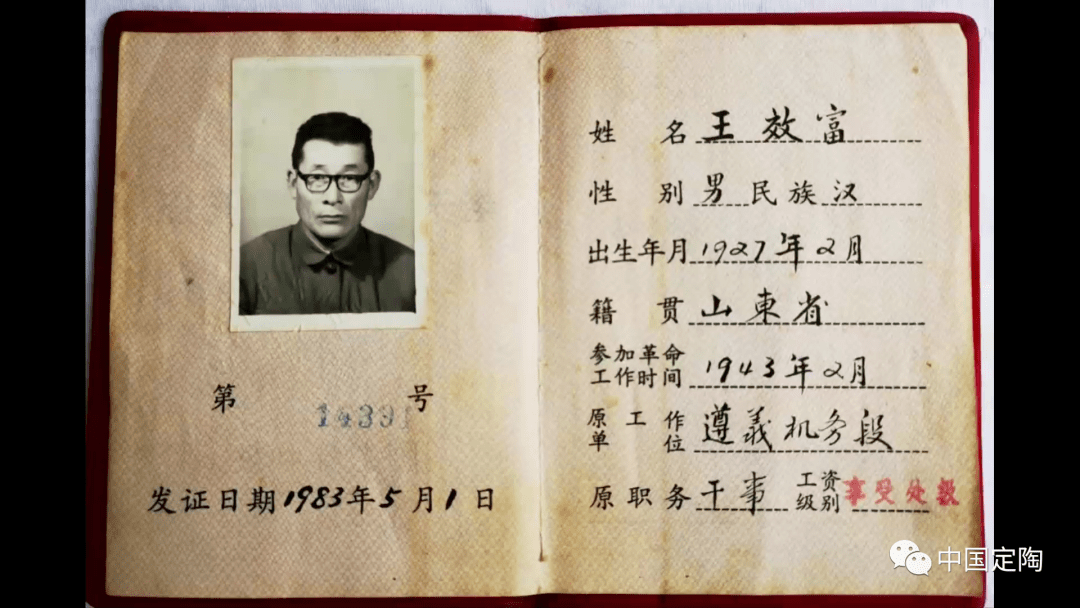 第 1439 号
发证日期1983年5月1日
姓名 王效富
性别 男 民族 汉
出生年月 1927年2月
籍贯 山東省
参加革命工作时间 1943年2月
原工作单位 遵義机务段
原职务 干事 工资级别 享受处级
中国定陶